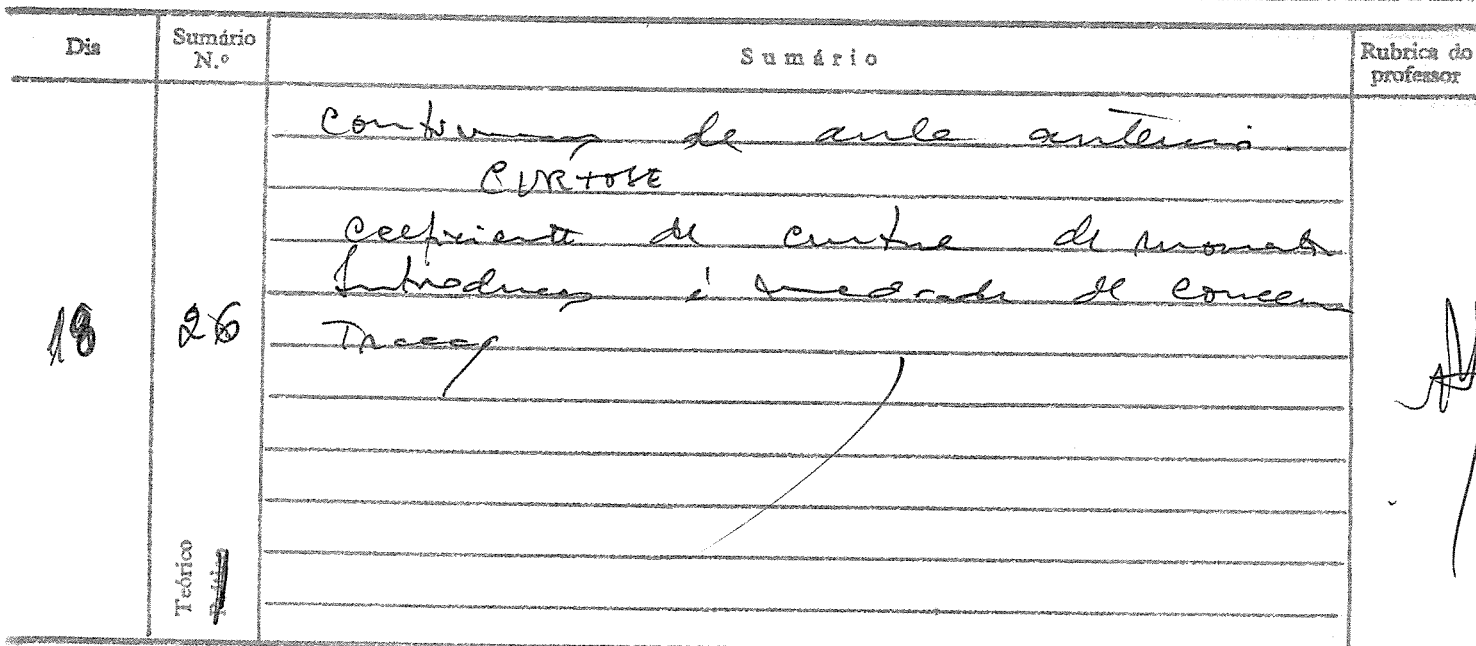 Dia
Sumário N.º
Sumário
Rubrica do professor
Continuação da aula anterior.
CURTOSE
Coeficiente de curtose de momentos
Introdução à medida de concen
tração
18
26
Teórico